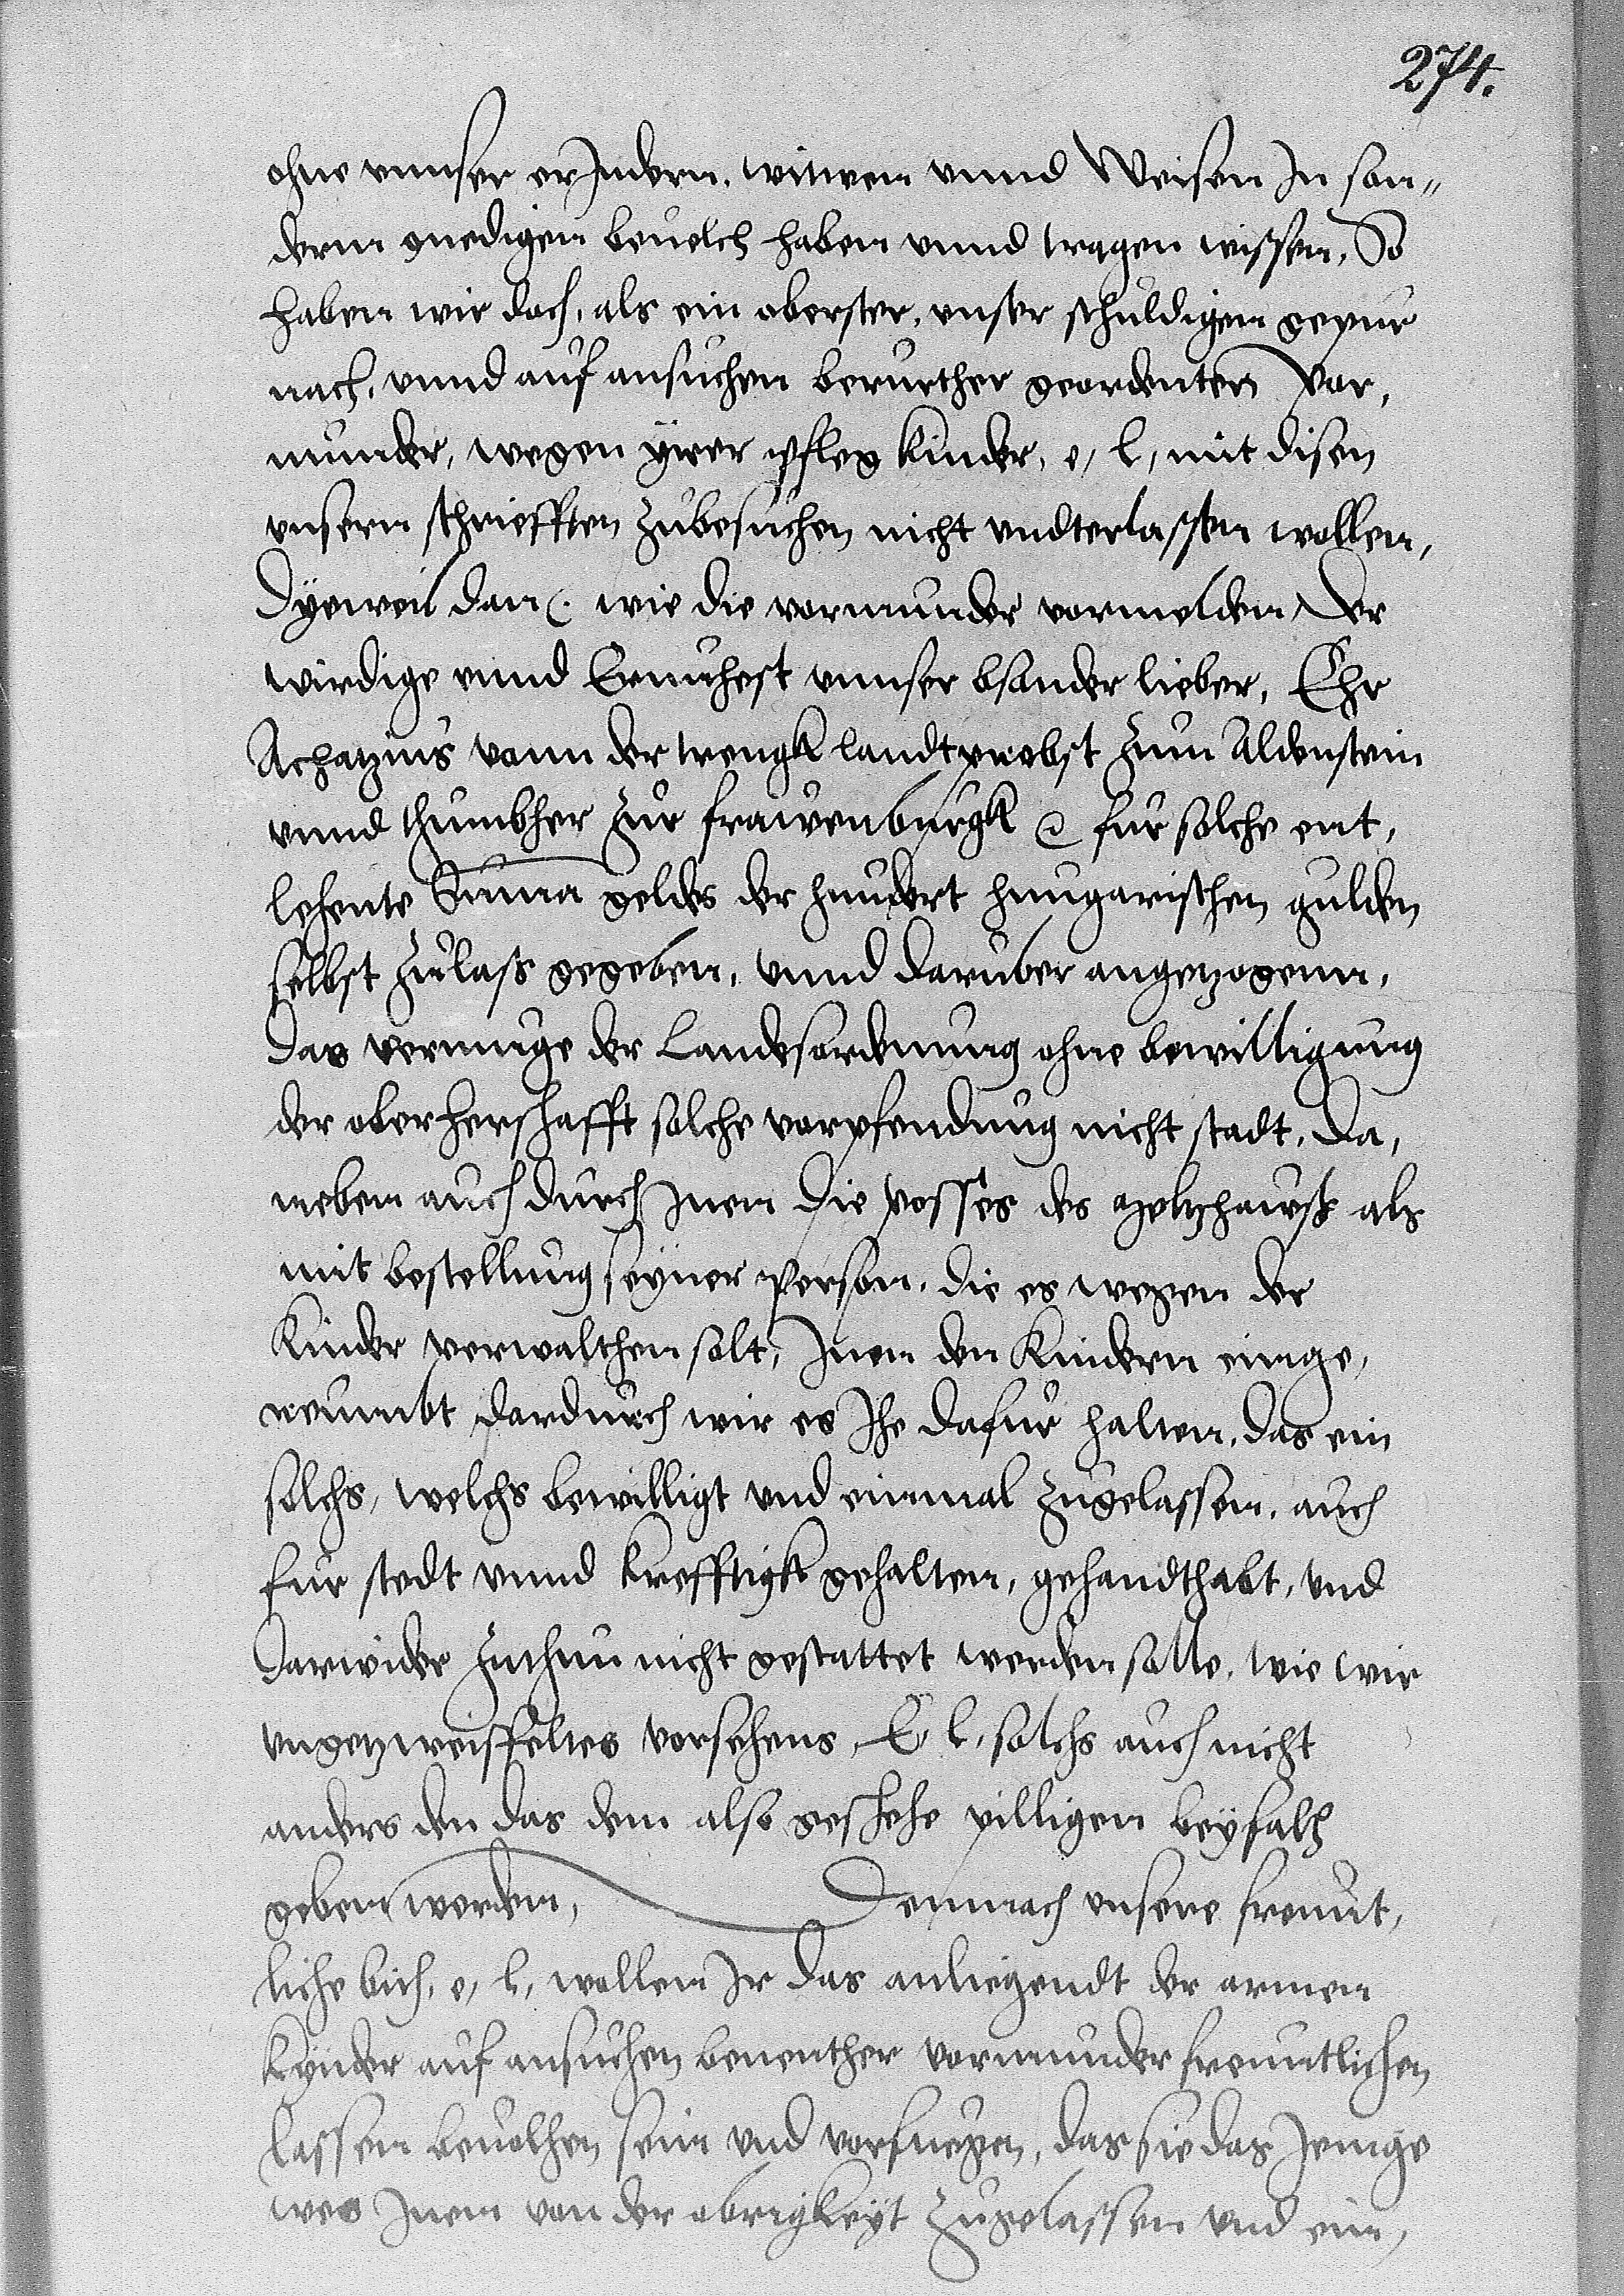 274.
ohne vnnser erJndern. witwen vnnd Weisen Jn son„
derm gnedigem beuelch haben vnnd tragen wissen, So
haben wir doch, als ein oberster, vnser schuldigen gepur
nach, vnnd auf ansuchen berurther geordenten vor,
munder, wegen yrer pfleg kinder, e, l, mit disen
vnsern schriefften zubesuchen nicht vndterlassen wollen,
Dyeweil dan (. wie die vormunder vormelden der
wirdige vnnd Ernuhest vnnser bsonder lieber, Ehr
Achatzius vonn der trengk landtprobst zum Aldenstein
vnnd thumbher zur frawenburgk etc fur solche ent,
lehente Summa geldes der hundert hungarischen gulden
selbst zulass gegeben, vnnd daruber angezogenn,
das vermuge der Landesordenung ohne bewilligung
der oberherschafft solche vorpfendung nicht stadt, Da,
neben auch durch Jnen die posses des holtzhauss als
mit bestellung seyner person, die es wegen der
kinder verwalthen solt, Jnen den kindern einge,
reumbt dardurch wir es Jhe dafur halten, das ein
solchs, welchs bewilligt vnd einmal zugelassen, auch
fur stedt vnnd krefftigk gehalten, gehandthabt, vnd
darwider zuthun nicht gestattet werden solle, wie wir
vngezweiffeltes vorsehens, E, l, solchs auch nicht
anders den das dem also geschehe pilligen beyfall
geben werden, Demnach vnsere freunt,
liche bith, e, l, wollen Jr das anliegendt der armen
kynder auf ansuchen benenther vormunder freuntlichen
lassen beuolhen sein vnd vorfuegen, das sie das Jenige
wes Jnen von der obrigkeyt zugelassen vnd ein,